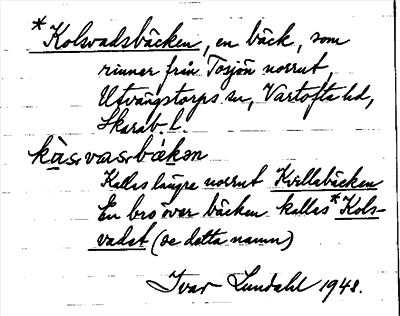 *Kolsvadsbäcken, en bäck, som
rinner från Tosjön norrut,
Utvängstorps sn, Vartofta hd,
Skarab. l.
kàs₁vas₁bäkən
Kallas längre norrut Kvillabäcken
En bro över bäcken kallas *Kols-
vadet (se detta namn)
Ivar Lundahl 1948.